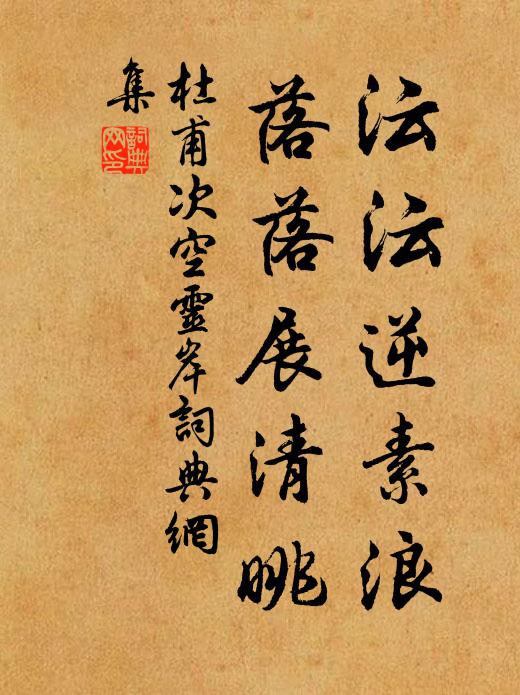 沄沄逆素浪
落落展清眺
杜甫次空靈岸詞典網
集
詞典網印